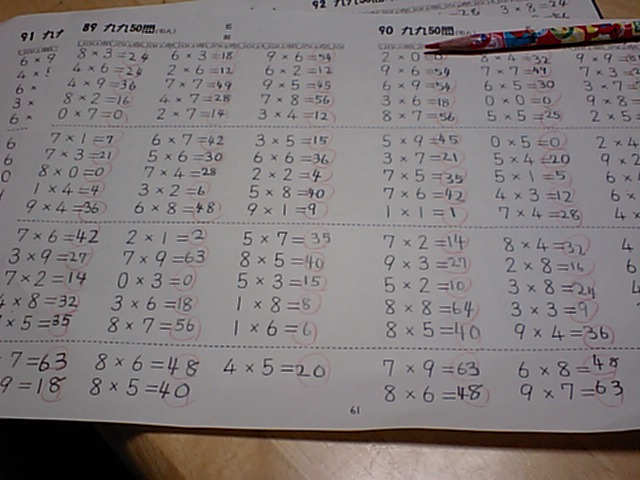 92 九九50問
3 × 8 = 24
91 九九
89 九九50問
8 × 3 = 24 6 × 3 = 18 9 × 6 = 54
4 × 6 = 24 2 × 6 = 12 6 × 2 = 12
4 × 9 = 36 7 × 7 = 49 9 × 5 = 45
8 × 2 = 16 4 × 7 = 28 7 × 8 = 56
0 × 7 = 0 2 × 7 = 14 3 × 4 = 12
7 × 1 = 7 6 × 7 = 42 3 × 5 = 15
7 × 3 = 21 5 × 6 = 30 6 × 6 = 36
8 × 0 = 0 7 × 4 = 28 2 × 2 = 4
1 × 4 = 4 3 × 2 = 6 5 × 8 = 40
9 × 4 = 36 6 × 8 = 48 9 × 1 = 9
7 × 6 = 42 2 × 1 = 2 5 × 7 = 35
3 × 9 = 27 7 × 9 = 63 8 × 5 = 40
7 × 2 = 14 0 × 3 = 0 5 × 3 = 15
4 × 8 = 32 3 × 6 = 18 1 × 8 = 8
× 5 = 35 8 × 7 = 56 1 × 6 = 6
7 = 63 8 × 6 = 48 4 × 5 = 20
9 = 18 8 × 5 = 40
90 九九50問
2 × 0 = 0 8 × 4 = 32 9 × 9
9 × 6 = 54 7 × 7 = 49 7 × 3 =
6 × 9 = 54 6 × 5 = 30 3 × 7
3 × 6 = 18 0 × 0 = 0 9 × 8 =
8 × 7 = 56 5 × 5 = 25 2 × 5 =
5 × 9 = 45 0 × 5 = 0 2 × 4
3 × 7 = 21 5 × 4 = 20 9 ×
7 × 5 = 35 5 × 1 = 5 6 ×
7 × 6 = 42 4 × 3 = 12 6 ×
1 × 1 = 1 7 × 4 = 28 4 ×
7 × 2 = 14 8 × 4 = 32 4
9 × 3 = 27 2 × 8 = 16 6
5 × 2 = 10 3 × 8 = 24 4
8 × 8 = 64 3 × 3 = 9
8 × 5 = 40 9 × 4 = 36
7 × 9 = 63 6 × 8 = 48
8 × 6 = 48 9 × 7 = 63
61